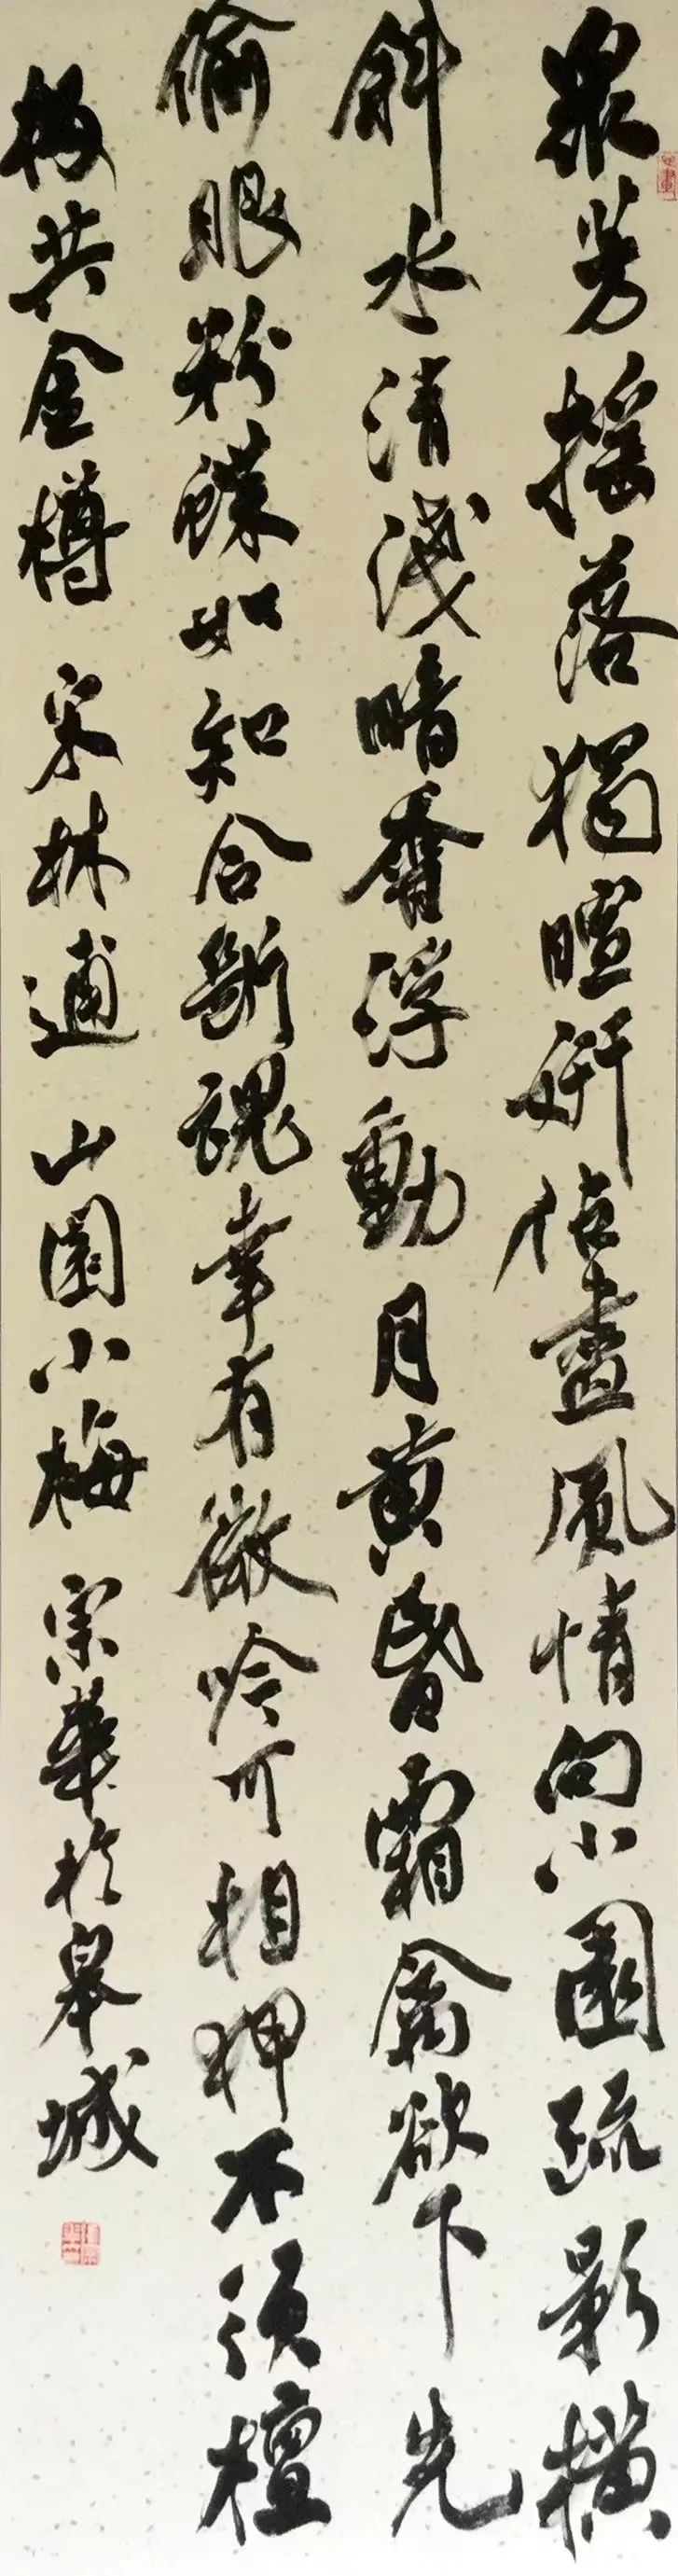 眾芳搖落獨暄妍佔盡風情向小園疏影橫
斜水清淺暗香浮動月黃昏霜禽欲下先
偷眼粉蝶如知合斷魂幸有微吟可相狎不須檀
板共金樽 宋林逋 山園小梅 宗華於皋城